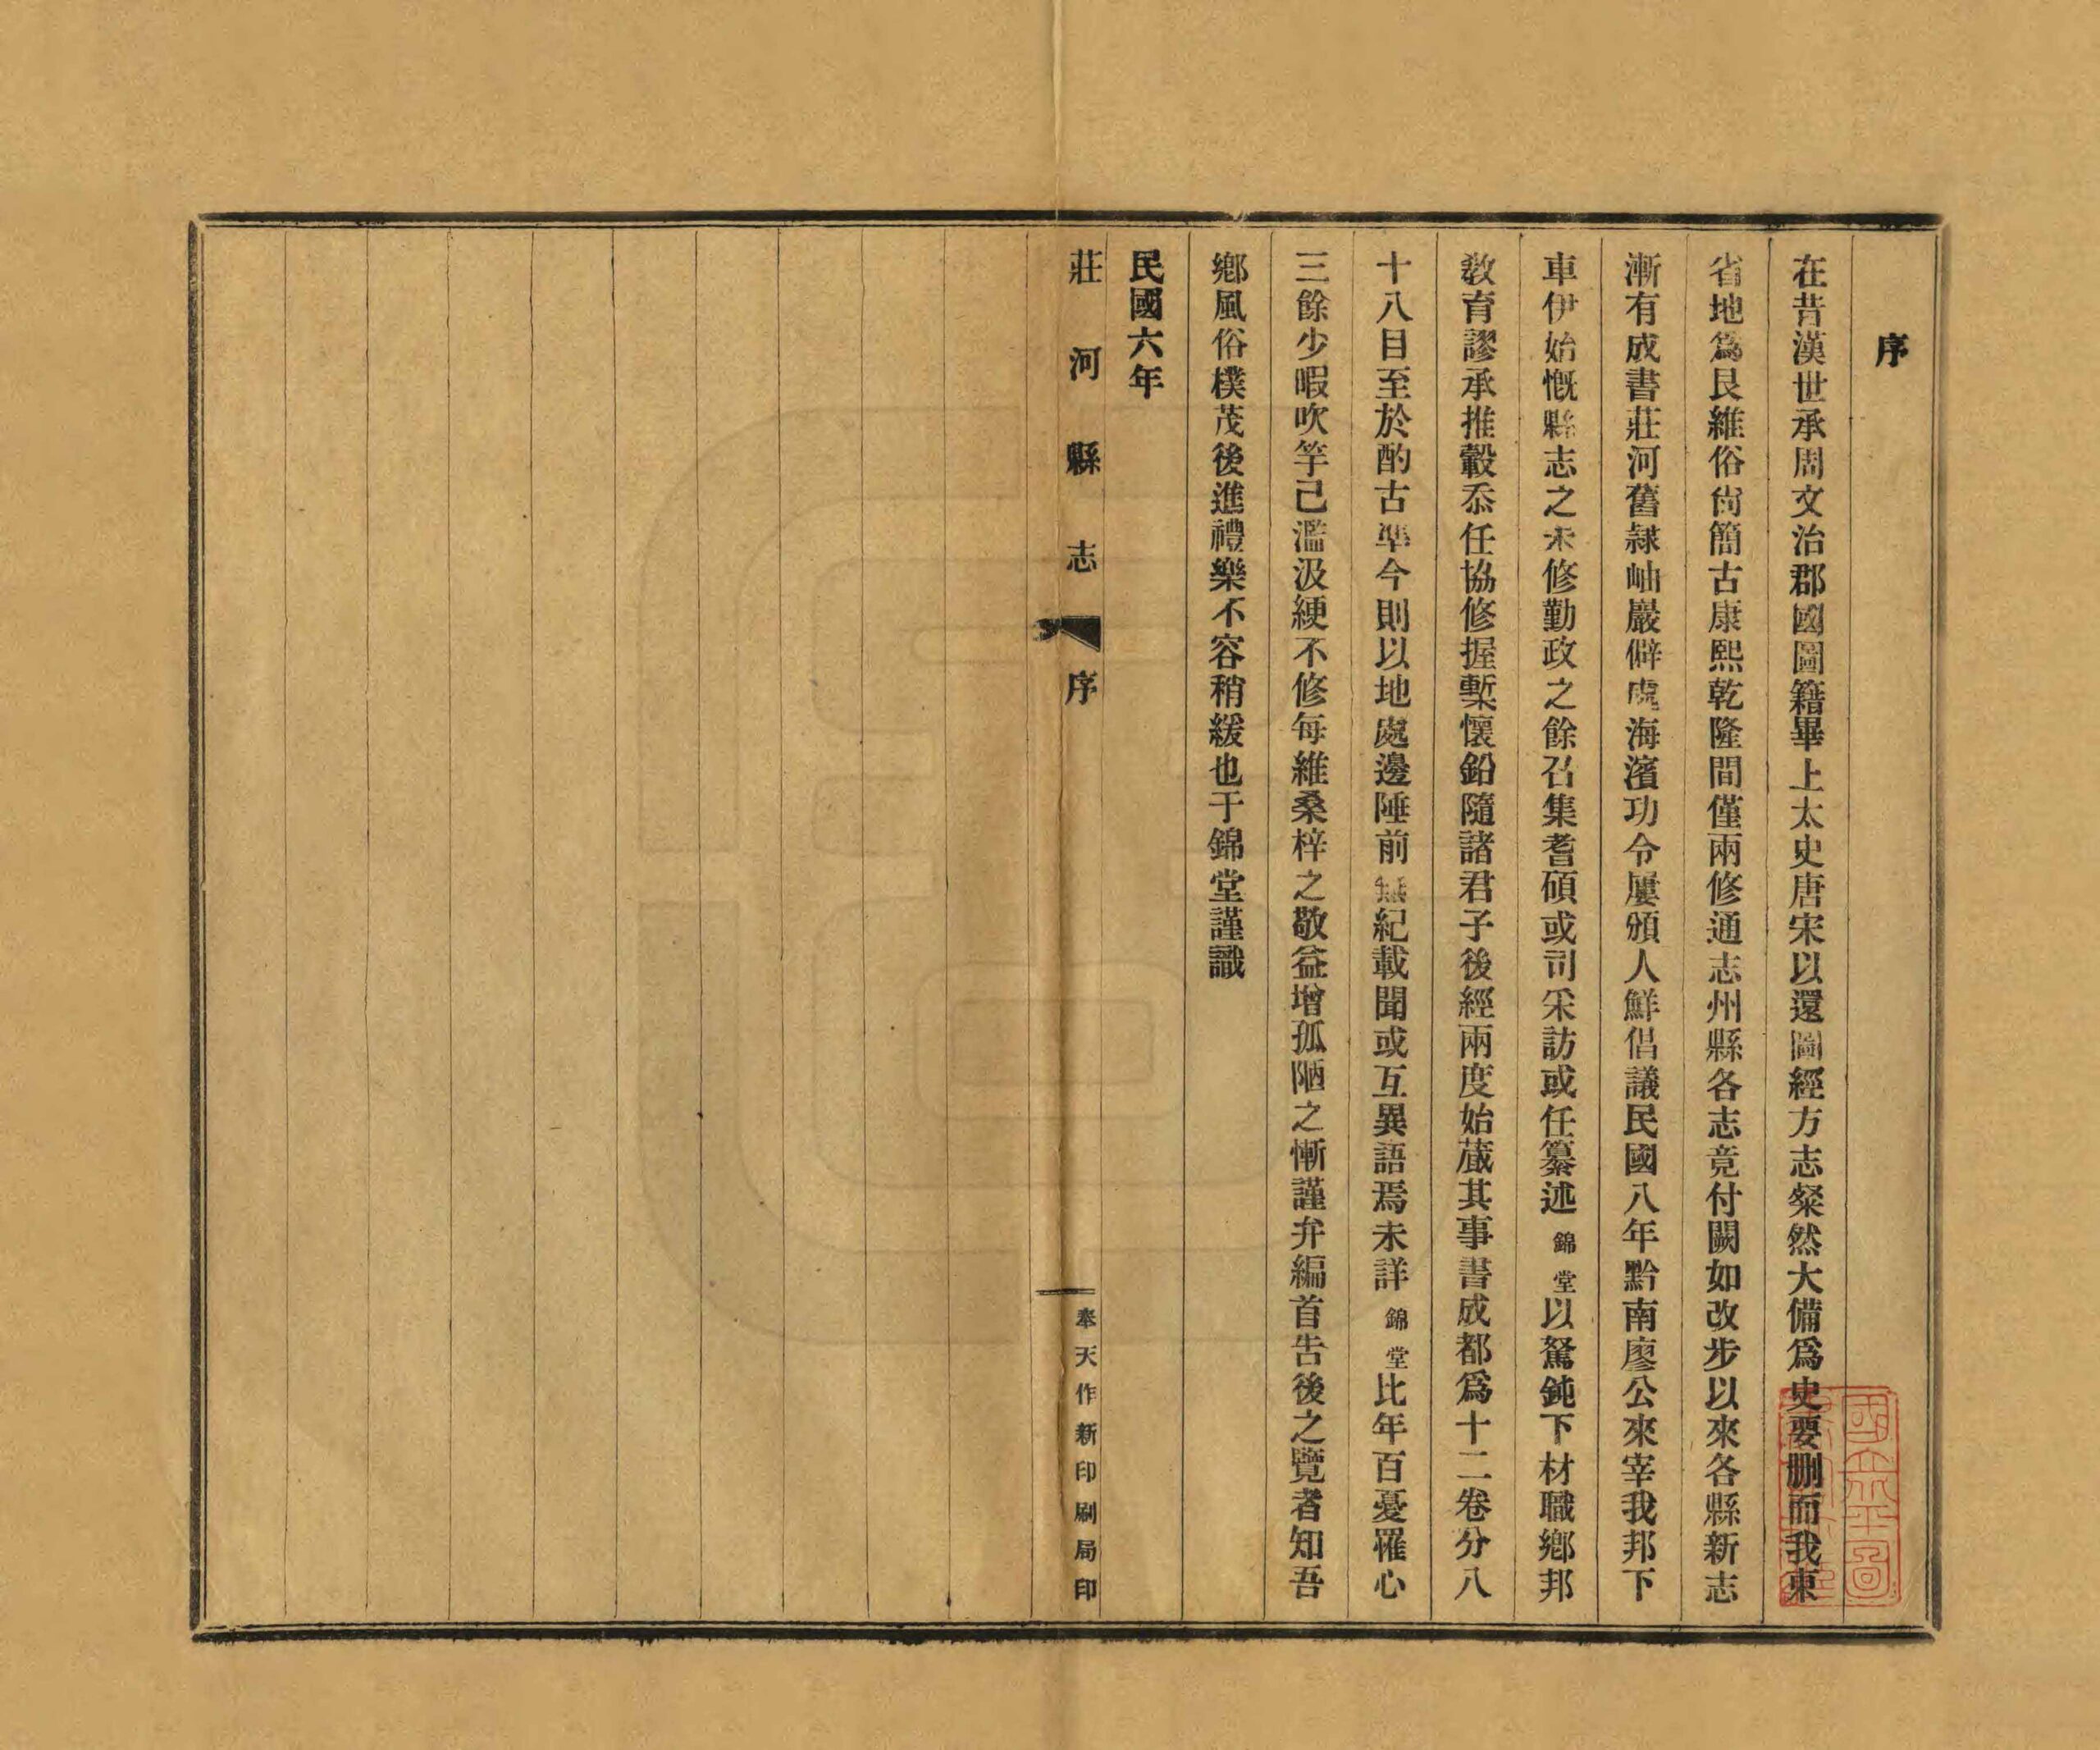 序
在昔漢世承周文治郡國圖籍畢上太史唐宋以還圖經方志粲然大備爲史要删而我東
省地爲艮維俗尙簡古康熙乾隆間僅兩修通志州縣各志竟付闕如改步以來各縣新志
漸有成書莊河舊隸岫巖僻處海濱功令屢頒人鮮倡議民國八年黔南廖公來宰我邦下
車伊始慨縣志之未修勤政之餘召集耆碩或司采訪或任纂述錦堂以駑鈍下材職鄕邦
敎育謬承推轂忝任協修握槧懷鉛隨諸君子後經兩度始蕆其事書成都爲十二卷分八
十八目至於酌古準今則以地處邊陲前無紀載聞或互異語焉未詳錦堂比年百憂罹心
三餘少暇吹竽己濫汲綆不修每維桑梓之敬益增孤陋之慚謹弁編首吿後之覽者知吾
鄕風俗樸茂後進禮樂不容稍緩也于錦堂謹識
民國六年
莊河縣志 序
奉天作新印刷局印